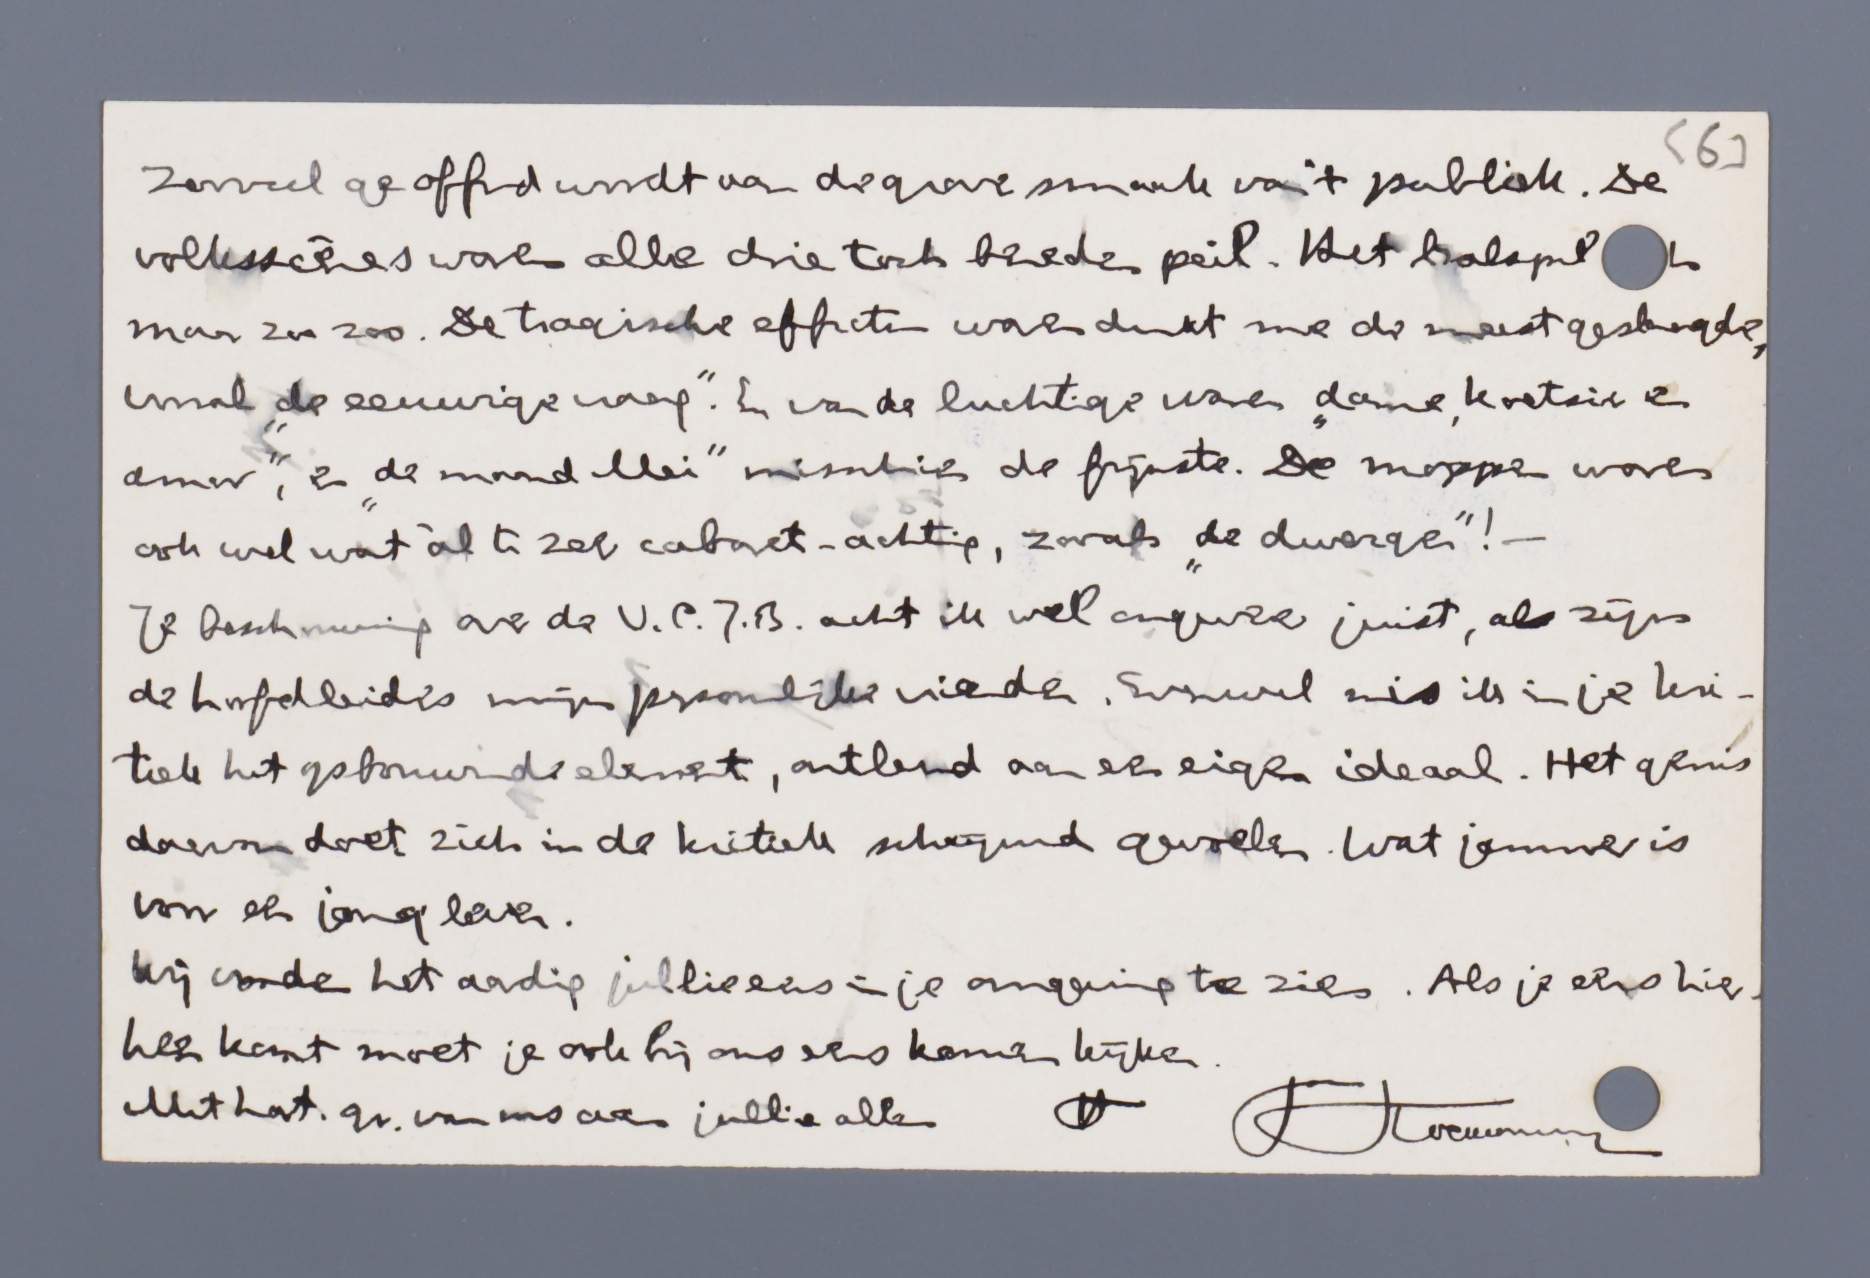 [6]
zooveel geofferd wordt aan de grove smaak van 't publiek. De
volksscènes waren alle drie toch beneden peil. Het balspel
maar zoo zoo. De tragische effecten waren dunkt me de meest geslaagde,
vooral „de eeuwige vraag". En van de luchtige waren „dame, koetsier en
amor", en „de maand Mei" misschien de fijnste. De moppen waren
ook wel wat àl te zeer cabaret-achtig, zooals „de dwergen"! —
Je beschouwing over de V.C.J.B. acht ik wel ongeveer juist, al zijn
de hoofdleiders mijn persoonlijke vrienden. Evenwel mis ik in je kri-
tiek het opbouwende element, ontleend aan een eigen ideaal. Het gemis
daarvan doet zich in de kritiek schrijnend gevoelen. Wat jammer is
voor een jong leven.
Wij vonden het aardig jullie eens in je omgeving te zien. Als je eens hier-
heen komt moet je ook bij ons eens komen kijken.
Met hart. gr. van ons aan jullie allen